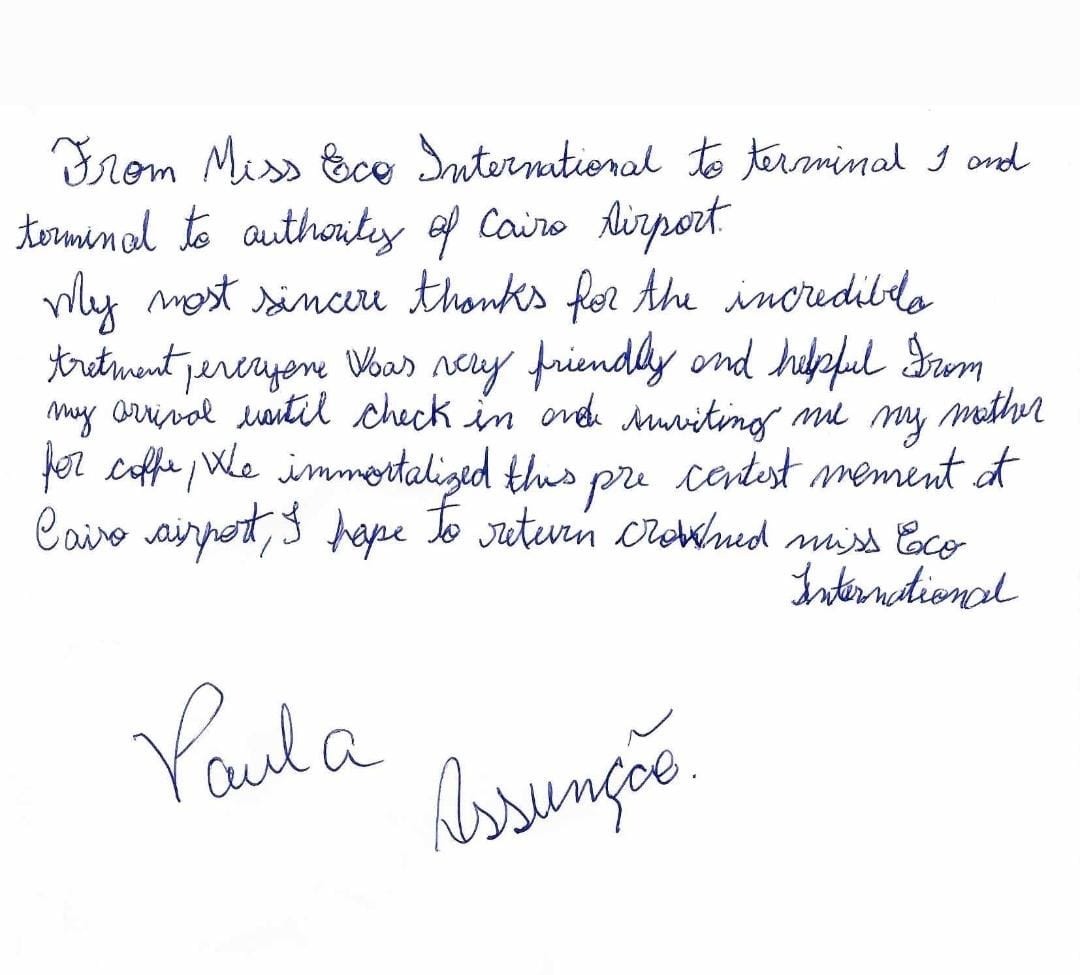 From Miss Eco International to terminal 1 and
terminal to authority of Cairo Airport.
My most sincere thanks for the incredible
tretment, everyone was very friendly and helpful From
my arrival until check in and inviting me my mother
for coffe, We immortalized this pre contest moment at
Cairo airport, I hope to return crowned miss Eco
International
Paula
Assunção.